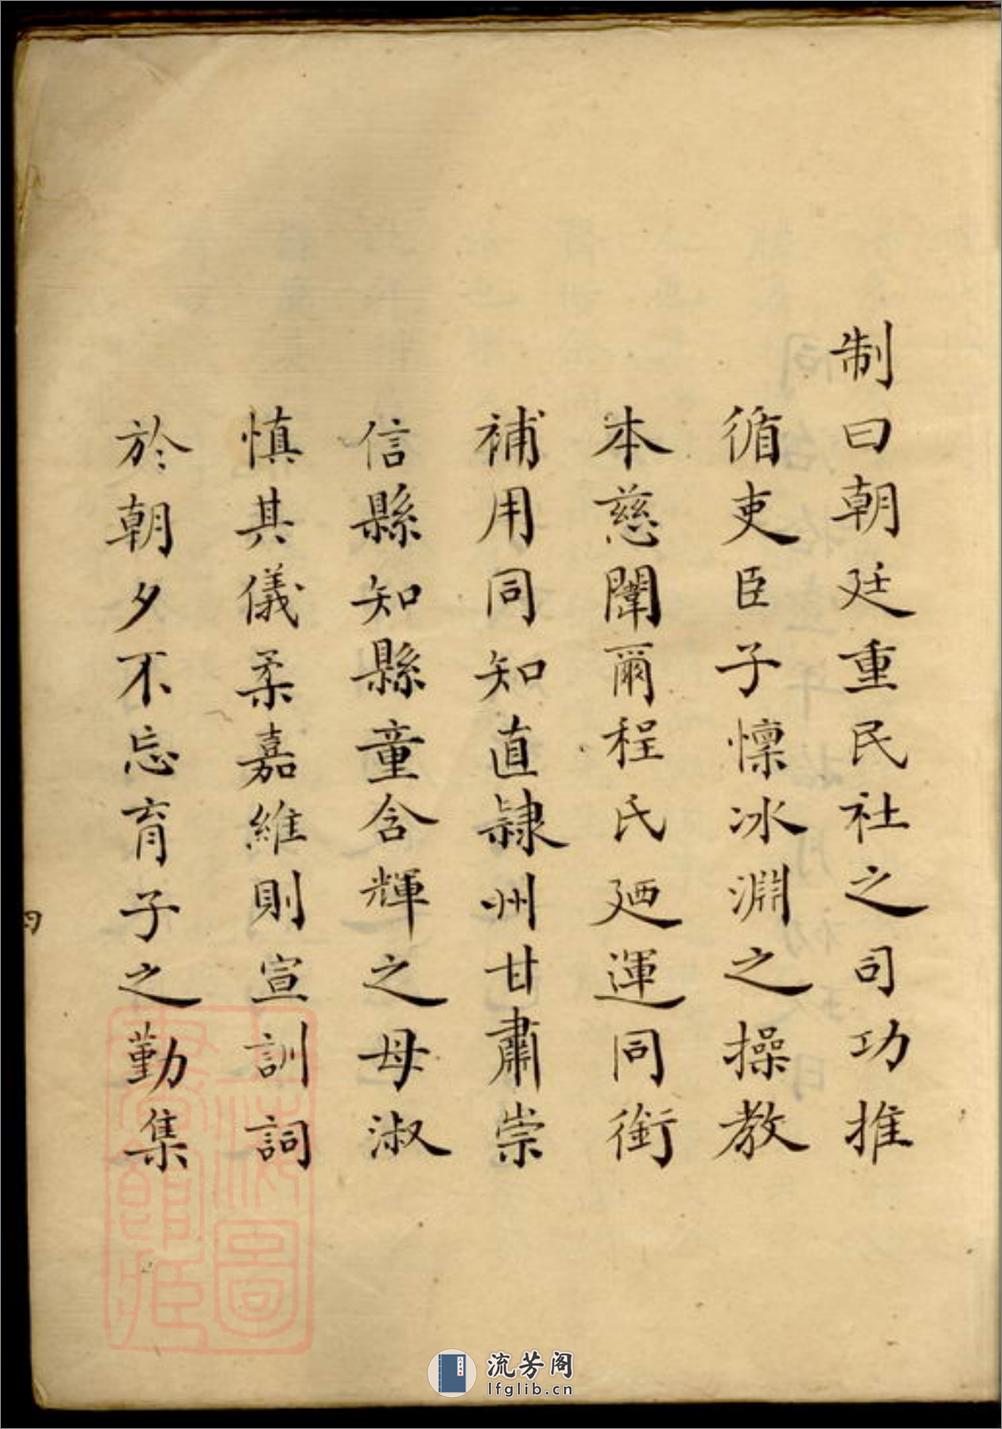 制曰朝廷重民社之司功推
循吏臣子懍冰淵之操教
本慈闈爾程氏廼運同銜
補用同知直隸州甘肅崇
信縣知縣童含輝之母淑
慎其儀柔嘉維則宣訓詞
於朝夕不忘育子之勤集
四
流芳阁
lfglib.cn